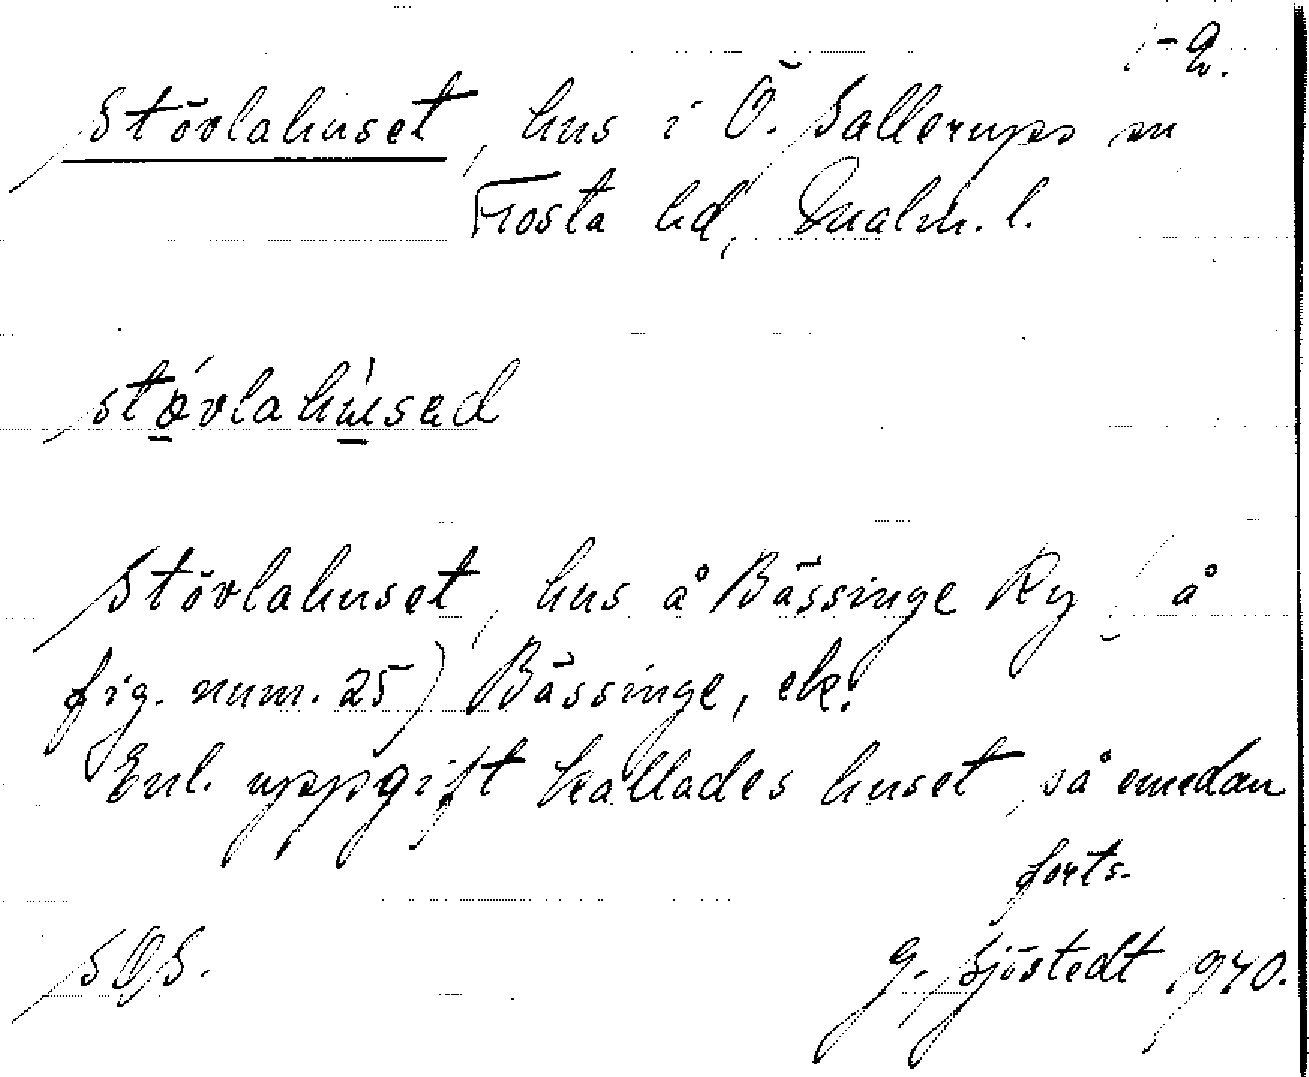 1-2.
Stövlahuset, hus i Ö. Sallerups sn
Frosta hd, Malm. l.
stǿvlahúsəd
Stövlahuset, hus å Bässinge Ry (å
fig. num. 25) Bässinge, ek.
Enl. uppgift kallades huset så emedan
forts.
SOS.
G. Sjöstedt 1940.